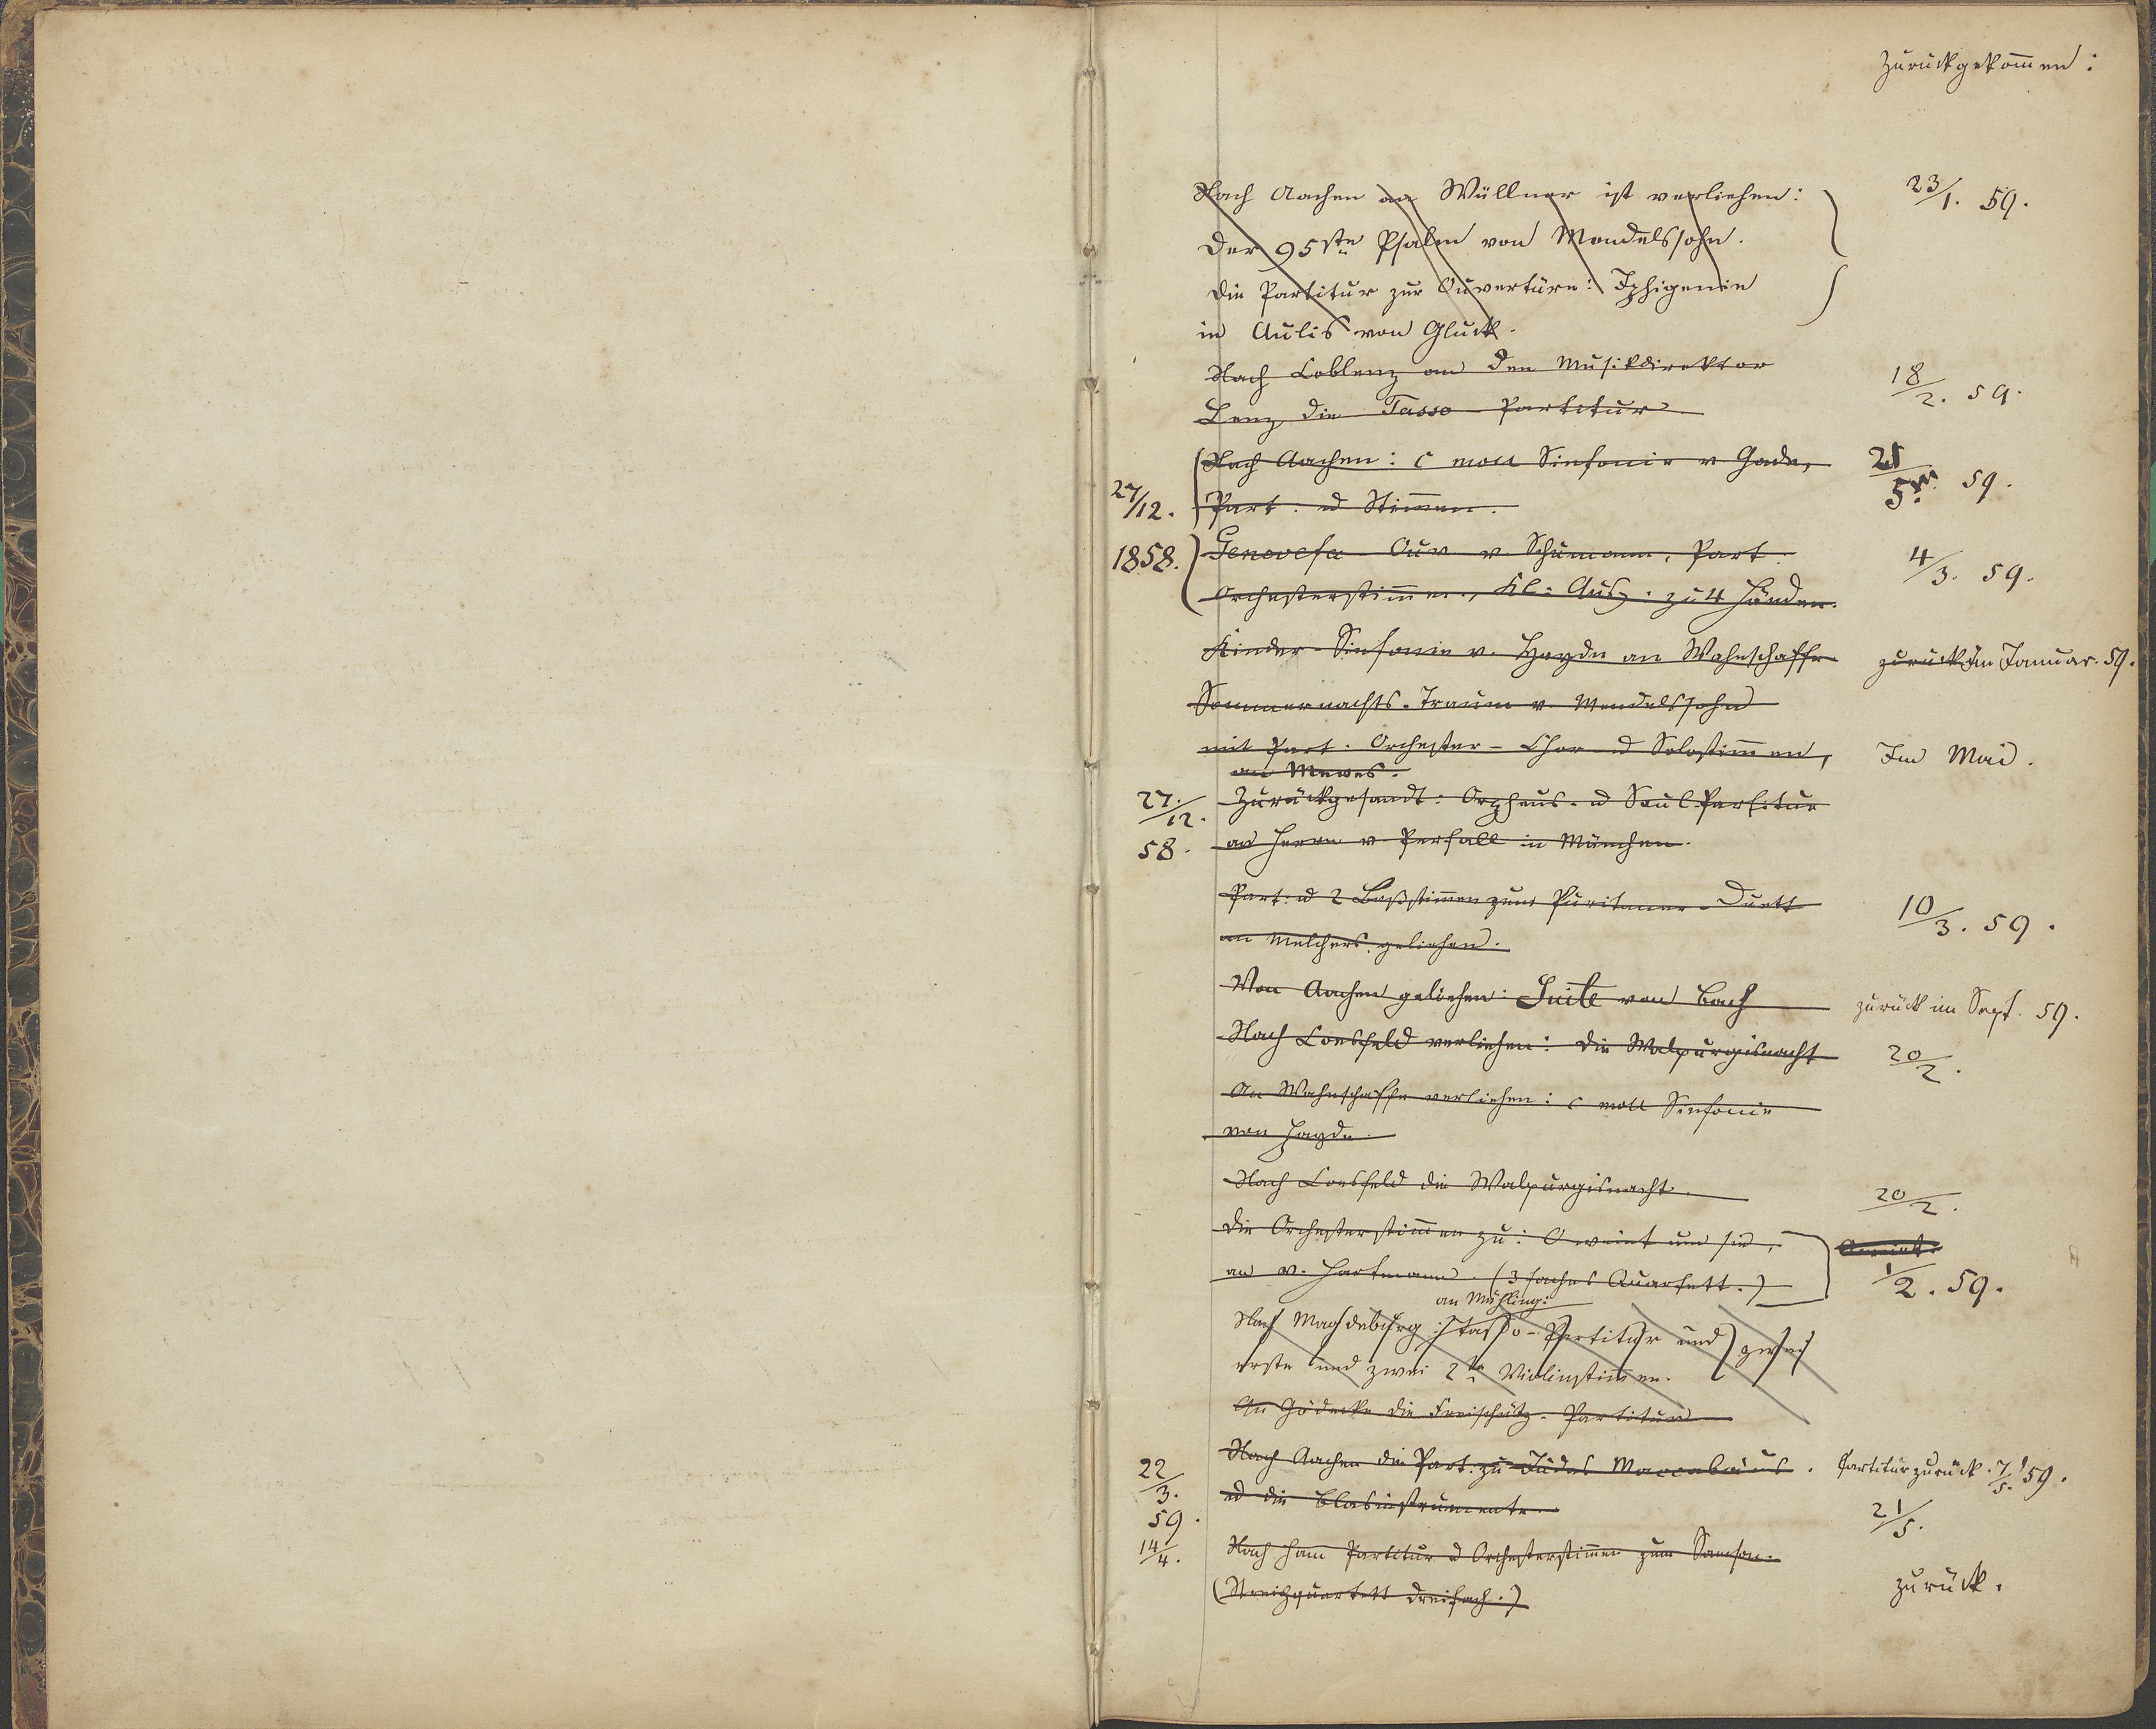 Zurückgekom̅en:
Nach Aachen an Wüllner ist verliehen: 23/1. 59.
Der 95ste Psalm von Mendelssohn.
Die Partitur zur Ouvertüre: Iphigenie
in Aulis von Gluck.
Nach Coblenz an den Musikdirektor
Lenz die Tasso-Partitur 18/2. 59.
Nach Aachen: C moll Sinfonie v. Gade, 21/5. 59.
27/12. Part. u Stim̅en.
1858. Genovefa Ouv. v. Schumann, Part. 4/3. 59.
Orchesterstim̅en, Kl. Ausz. zu 4 Händen.
Kinder-Sinfonie v. Haydn an Wahnschaffe zurück im Januar. 59.
Sommernachts-Traum v. Mendelssohn
mit Part. Orchester- Chor u Solostim̅en, Im Mai.
an Mewes.
27./12. Zurückgesandt: Orpheus- u Saul Partitur
58. an Herrn v. Perfall in München.
Part: u 2 Baßstim̅en zum Puritaner-Duett 10/3. 59.
an Melchers geliehen.
Von Aachen geliehen: Suite von Bach zurück im Sept. 59.
Nach Coesfeld verliehen: Die Walpurgisnacht 20/2.
An Wahnschaffe verliehen: C moll Sinfonie
von Haydn.
Nach Coesfeld die Walpurgisnacht. 20/2.
Die Orchesterstim̅en zu: O weint um sie,
an v. Hartmann. (3faches Quartett.) 1/2. 59.
an Mühling:
Nach Magdeburg: Tasso-Partitur und zwei
erste und zwei 2te Violinstim̅en.
An Gödecke die Freischütz-Partitur
22/3. 59. Nach Aachen die Part. zu Judas Maccabäus. Partitur zurück. 7/5. 59.
u die Blasinstrumente. 21/5.
14/4. Nach Ham̅ Partitur u Orchesterstim̅en zum Samson.
(Streichquartett dreifach.) zurück.